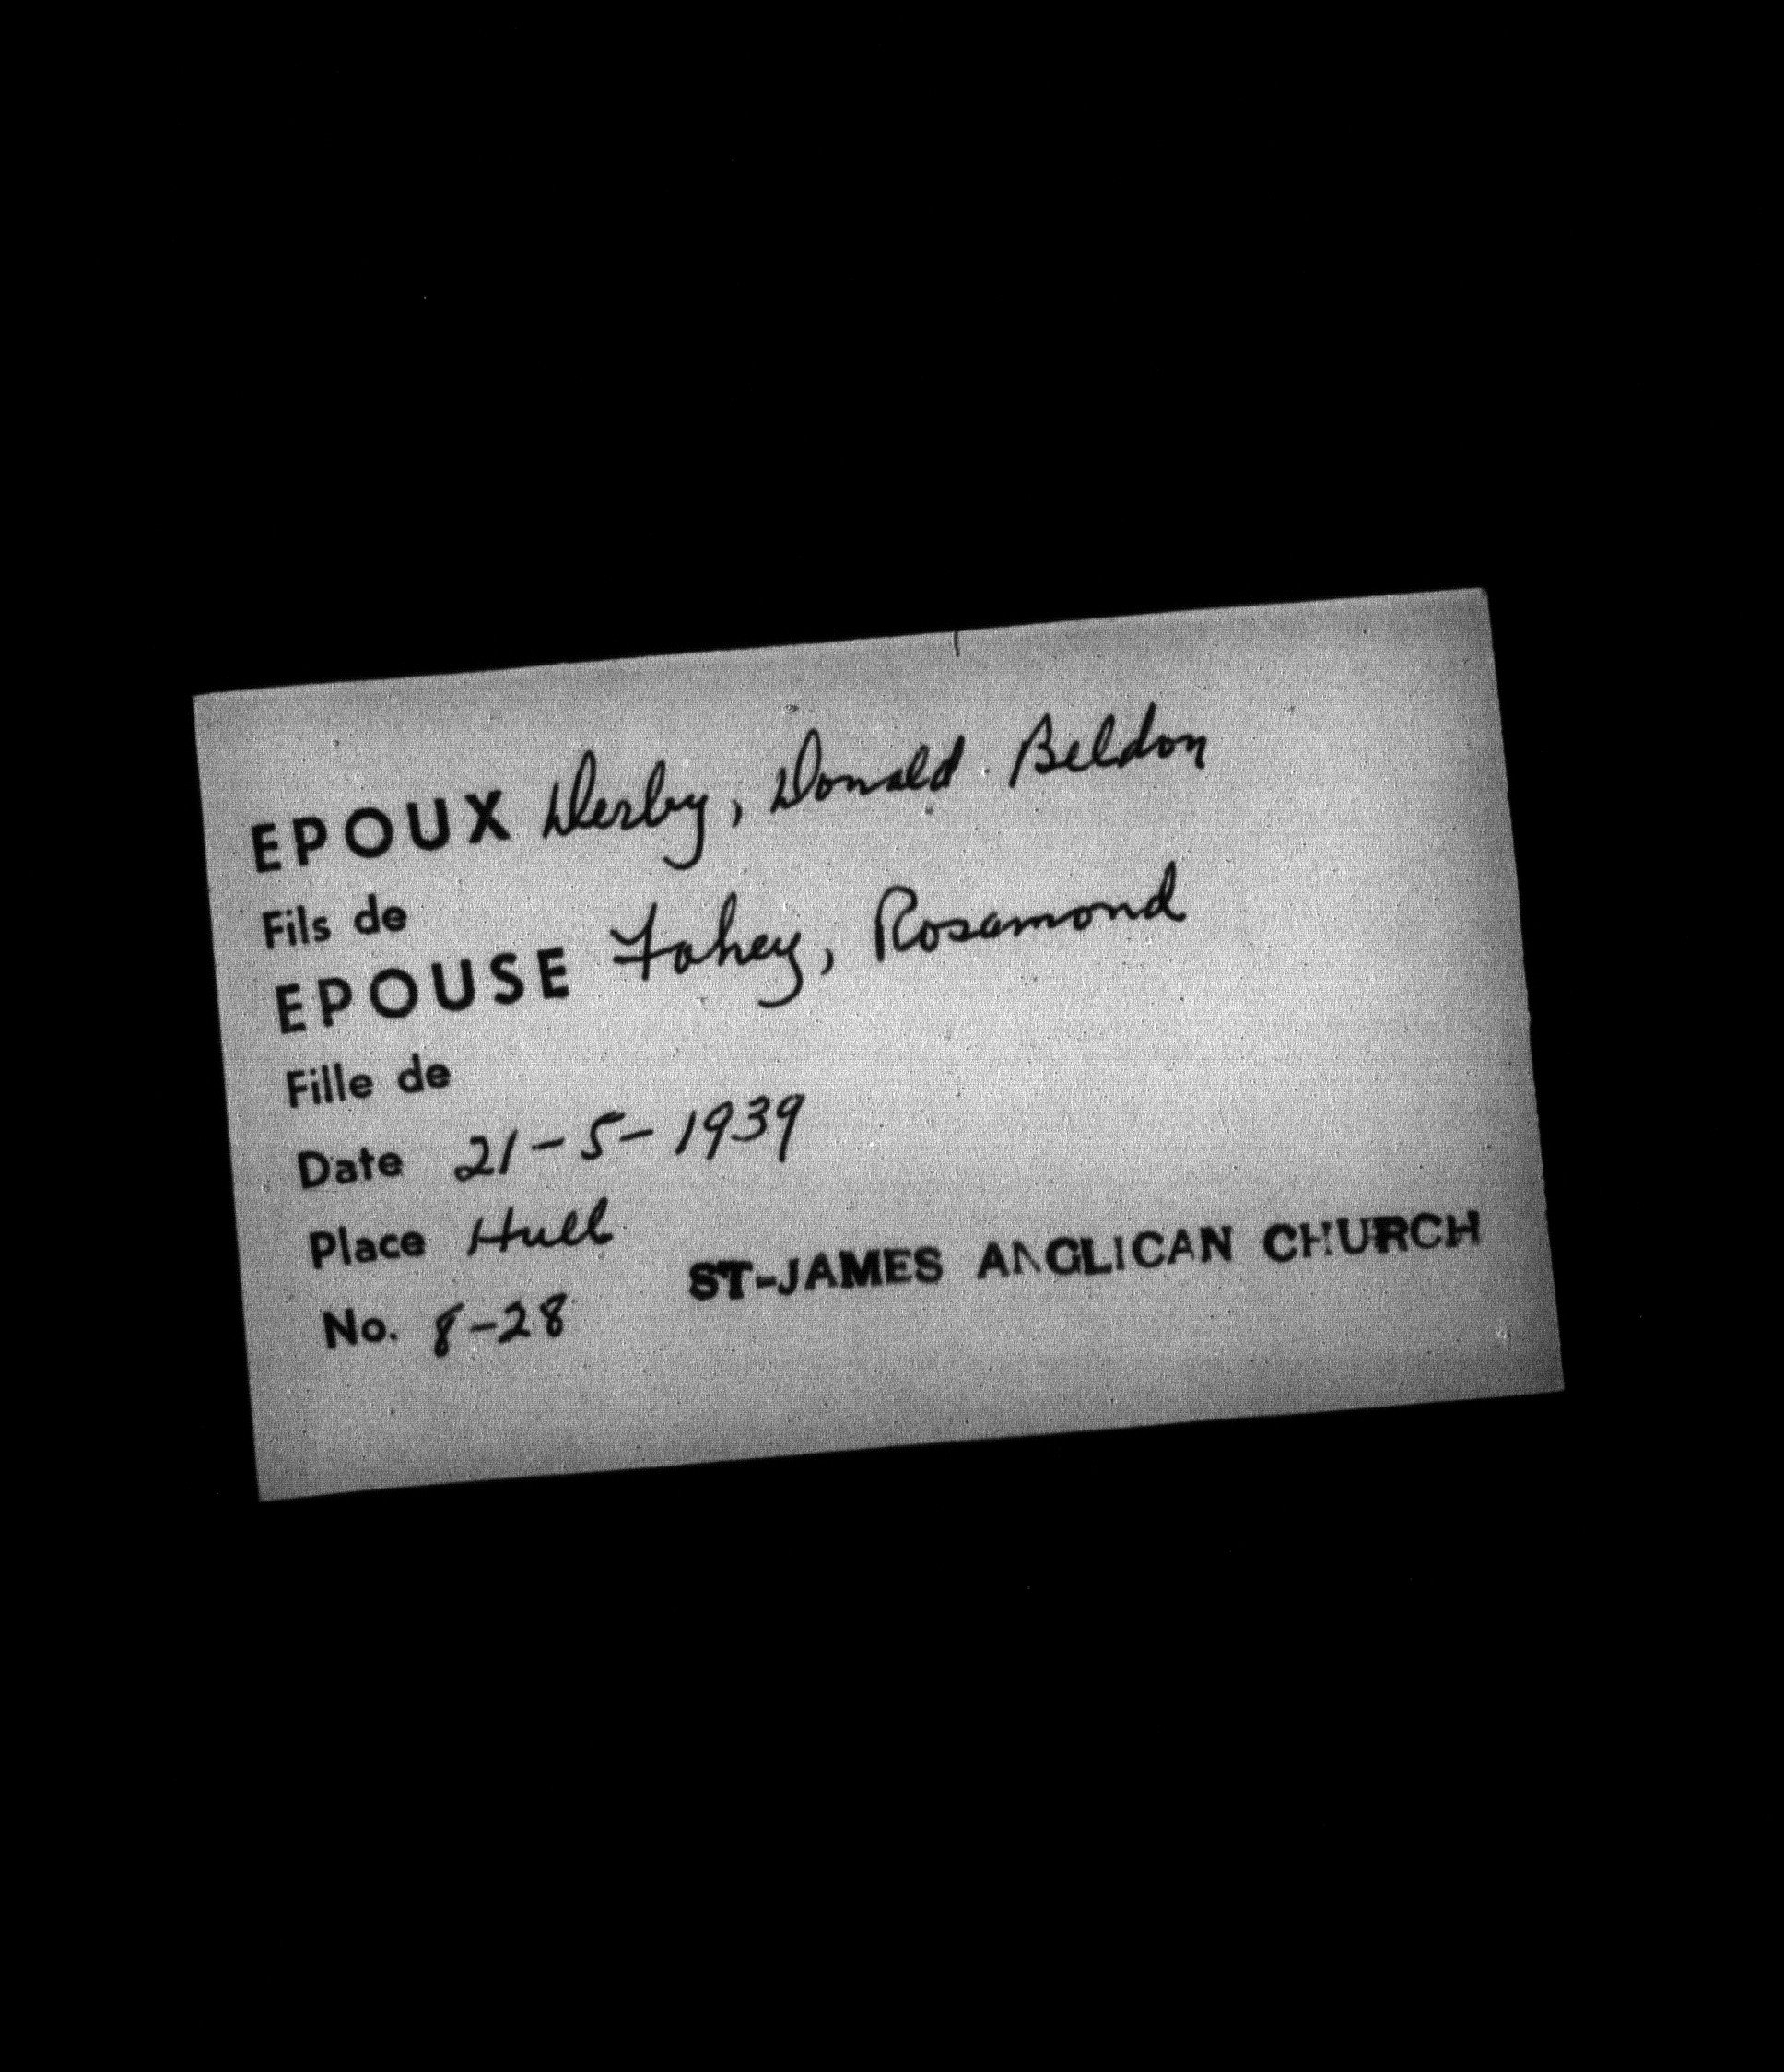 EPOUX Derby, Donald Beldon
Fils de
EPOUSE Fahey, Rosamond
Fille de
Date 21-5-1939
Place Hull
ST-JAMES ANGLICAN CHURCH
No. 8-28